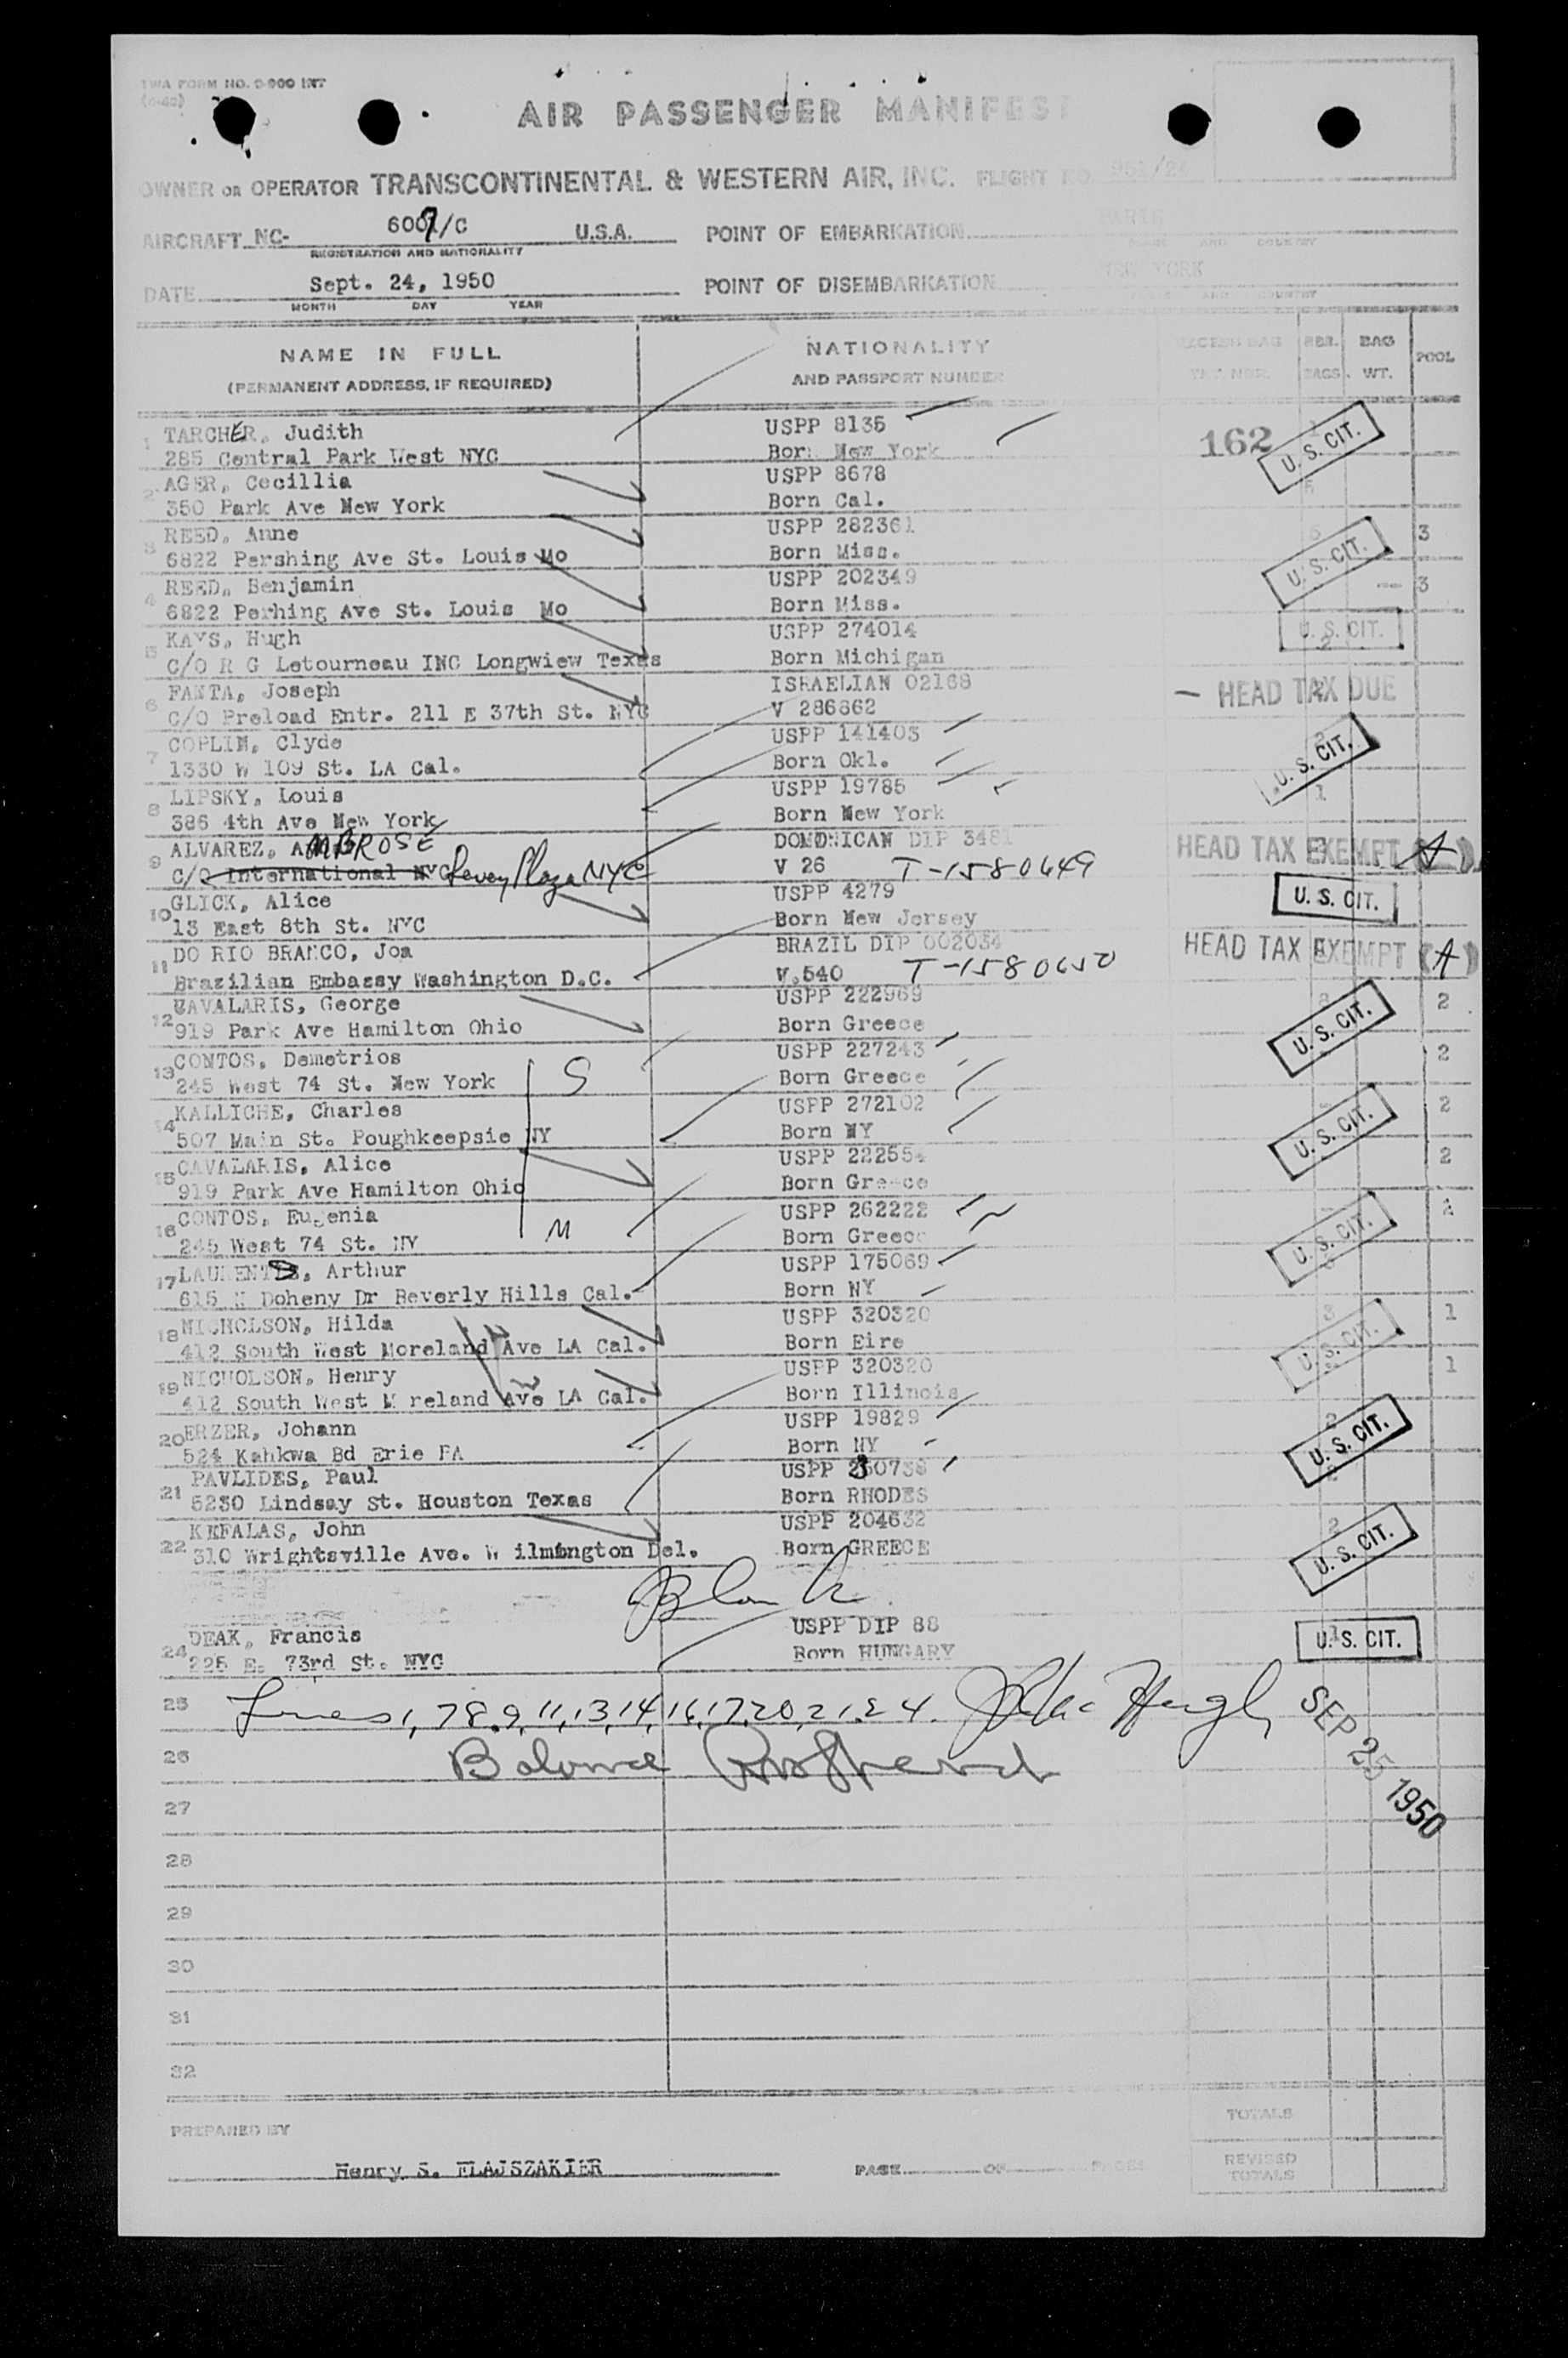 TWA FORM NO. 0-900 INT
AIR PASSENGER MANIFEST
OWNER OR OPERATOR TRANSCONTINENTAL & WESTERN AIR, INC. FLIGHT NO. 951/24
AIRCRAFT NC- 6007/C U.S.A. POINT OF EMBARKATION PARIS
REGISTRATION AND NATIONALITY PLACE AND COUNTRY
DATE Sept. 24, 1950 POINT OF DISEMBARKATION NEW YORK
MONTH DAY YEAR PLACE AND COUNTRY
NAME IN FULL NATIONALITY EXCESS BAG BAG POOL
(PERMANENT ADDRESS, IF REQUIRED) AND PASSPORT NUMBER BAGS WT.
1 TARCHER, Judith USPP 8135
285 Central Park West NYC Born New York 162 U. S. CIT.
2 AGER, Cecillia USPP 8678
350 Park Ave New York Born Cal.
3 REED, Anne USPP 282361 3
6822 Pershing Ave St. Louis Mo Born Miss. U. S. CIT.
4 REED, Benjamin USPP 202349 3
6822 Perhing Ave St. Louis Mo Born Miss.
5 KAYS, Hugh USPP 274014 U. S. CIT.
C/O R G Letourneau INC Longwiew Texas Born Michigan
6 FANTA, Joseph ISRAELIAN 02168 HEAD TAX DUE
C/O Preload Entr. 211 E 37th St. NYC V 286862
7 COPLIN, Clyde USPP 141403
1330 W 109 St. LA Cal. Born Okl. U. S. CIT.
8 LIPSKY, Louis USPP 19785
386 4th Ave New York Born New York
9 ALVAREZ, AMBROSE DOMONICAN DIP 3481 HEAD TAX EXEMPT (A)
C/O International NYC Plaza NYC V 26 T-1580649
10 GLICK, Alice USPP 4279 U. S. CIT.
13 East 8th St. NYC Born New Jersey
11 DO RIO BRANCO, Joa BRAZIL DIP 002034 HEAD TAX EXEMPT (A)
Brazilian Embassy Washington D.C. V.540 T-1580650
12 CAVALARIS, George USPP 222969 2
919 Park Ave Hamilton Ohio Born Greece U. S. CIT.
13 CONTOS, Demetrios USPP 227243 2
245 West 74 St. New York S Born Greece
14 KALLICHE, Charles USPP 272102 2
507 Main St. Poughkeepsie NY Born NY U. S. CIT.
15 CAVALARIS, Alice USPP 222554 2
919 Park Ave Hamilton Ohio Born Greece
16 CONTOS, Eugenia USPP 262222 2
245 West 74 St. NY M Born Greece U. S. CIT.
17 LAURENTS, Arthur USPP 175069
615 N Doheny Dr Beverly Hills Cal. Born NY
18 NICHOLSON, Hilda USPP 320320 3 1
412 South West Moreland Ave LA Cal. Born Eire U. S. CIT.
19 NICHOLSON, Henry USPP 320320 1
412 South West M reland Ave LA Cal. Born Illinois
20 ERZER, Johann USPP 19829 2
524 Kahkwa Bd Erie PA Born NY U. S. CIT.
21 PAVLIDES, Paul USPP 230738
5230 Lindsay St. Houston Texas Born RHODES
22 KEFALAS, John USPP 204632 2
310 Wrightsville Ave. W ilmington Del. Born GREECE U. S. CIT.
Blank
24 DEAK, Francis USPP DIP 88 U. S. CIT.
225 E. 73rd St. NYC Born HUNGARY
25 Lines 1, 7 8, 9, 11, 13, 14, 16, 17, 20, 21, 24.
26 Balance
SEP 25 1950
27
28
29
30
31
32
TOTALS
PREPARED BY
Henry S. FLAJSZAKIER PAGE OF PAGES REVISED TOTALS